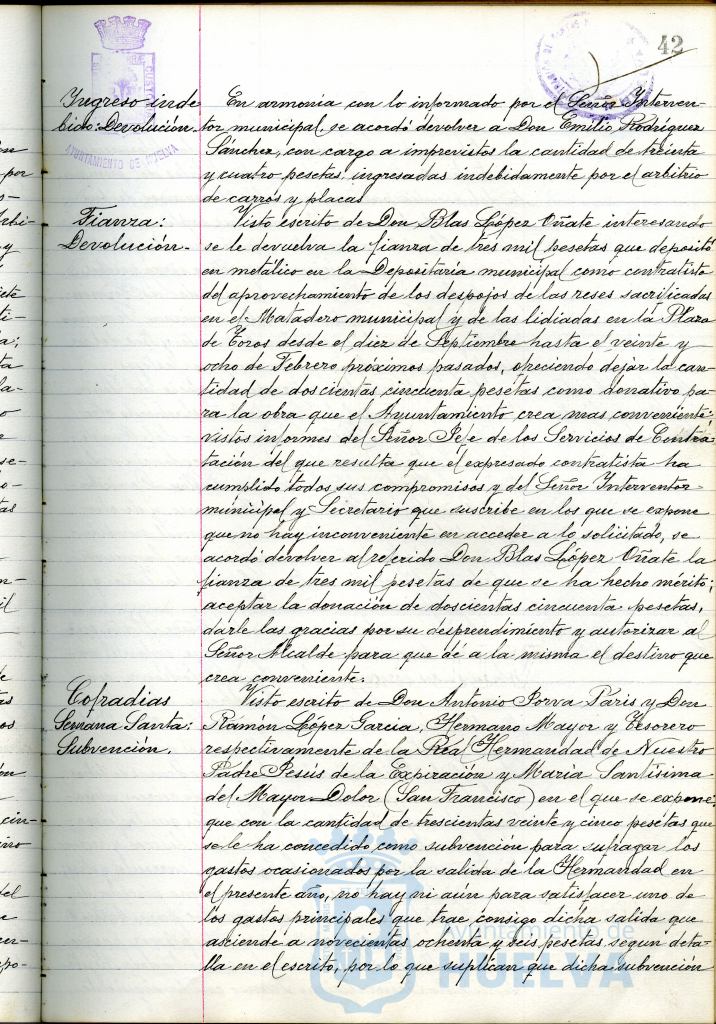 42
AYUNTAMIENTO DE HUELVA
Ingreso inde
bido: Devolución.
En armonía con lo informado por el Señor Interven-
tor municipal, se acordó devolver a Don Emilio Rodríguez
Sánchez, con cargo a imprevistos la cantidad de treinta
y cuatro pesetas, ingresadas indebidamente por el arbitrio
de carros y placas
Fianza:
Devolución.
Visto escrito de Don Blas López Oñate interesando
se le devuelva la fianza de tres mil pesetas que depositó
en metálico en la Depositaría municipal como contratista
del aprovechamiento de los despojos de las reses sacrificadas
en el Matadero municipal y de las lidiadas en la Plaza
de Toros desde el diez de Septiembre hasta el veinte y
ocho de Febrero próximos pasados, ofreciendo dejar la can-
tidad de doscientas cincuenta pesetas como donativo pa-
ra la obra que el Ayuntamiento crea mas conveniente
vistos informes del Señor Jefe de los Servicios de Contra-
tación del que resulta que el expresado contratista ha
cumplido todos sus compromisos y del Señor Interventor
municipal y Secretario que suscribe en los que se expone
que no hay inconveniente en acceder a lo solicitado, se
acordó devolver al referido Don Blas López Oñate la
fianza de tres mil pesetas de que se ha hecho mérito;
aceptar la donación de doscientas cincuenta pesetas,
darle las gracias por su desprendimiento y autorizar al
Señor Alcalde para que dé a la misma el destino que
crea conveniente.
Cofradias
Semana Santa:
Subvención.
Visto escrito de Don Antonio Jorva Paris y Don
Ramón López Garcia, Hermano Mayor y Tesorero
respectivamente de la Real Hermandad de Nuestro
Padre Jesús de la Expiración y María Santísima
del Mayor Dolor (San Francisco) en el que se expone
que con la cantidad de trescientas veinte y cinco pesetas que
se le ha concedido como subvención para sufragar los
gastos ocasionados por la salida de la Hermandad en
el presente año, no hay ni aún para satisfacer uno de
los gastos principales que trae consigo dicha salida que
asciende a novecientas ochenta y seis pesetas segun deta-
lla en el escrito, por lo que suplican que dicha subvención
Ayuntamiento de
HUELVA